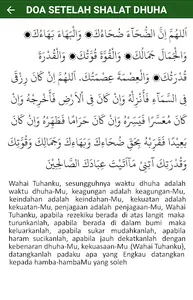 DOA SETELAH SHALAT DHUHA
اَللهُمَّ اِنَّ الضُّحَآءَ ضُحَاءُكَ وَالْبَهَاءَ بَهَاءُكَ
وَالْجَمَالَ جَمَالُكَ وَالْقُوَّةَ قُوَّتُكَ وَالْقُدْرَةَ
قُدْرَتُكَ وَالْعِصْمَةَ عِصْمَتُكَ. اَللهُمَّ اِنْ كَانَ رِزْقِى
فِى السَّمَآءِ فَأَنْزِلْهُ وَاِنْ كَانَ فِى اْلأَرْضِ فَأَخْرِجْهُ وَاِنْ
كَانَ مُعَسَّرًا فَيَسِّرْهُ وَاِنْ كَانَ حَرَامًا فَطَهِّرْهُ وَاِنْ كَانَ
بَعِيْدًا فَقَرِّبْهُ بِحَقِّ ضُحَاءِكَ وَبَهَاءِكَ وَجَمَالِكَ وَقُوَّتِكَ
وَقُدْرَتِكَ آتِنِىْ مَآاَتَيْتَ عِبَادَكَ الصَّالِحِيْنَ
Wahai Tuhanku, sesungguhnya waktu dhuha adalah
waktu dhuha-Mu, keagungan adalah keagungan-Mu,
keindahan adalah keindahan-Mu, kekuatan adalah
kekuatan-Mu, penjagaan adalah penjagaan-Mu, Wahai
Tuhanku, apabila rezekiku berada di atas langit maka
turunkanlah, apabila berada di dalam bumi maka
keluarkanlah, apabila sukar mudahkanlah, apabila
haram sucikanlah, apabila jauh dekatkanlah dengan
kebenaran dhuha-Mu, kekuasaan-Mu (Wahai Tuhanku),
datangkanlah padaku apa yang Engkau datangkan
kepada hamba-hambaMu yang soleh